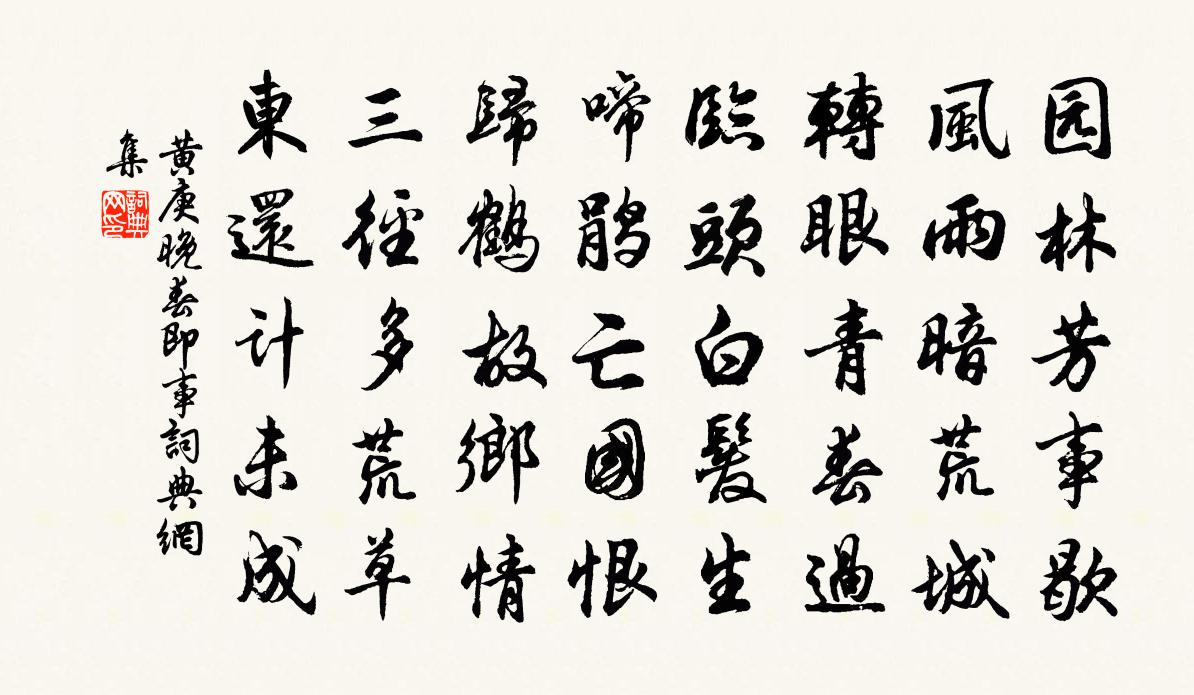 园林芳事歇
風雨暗荒城
轉眼青春過
臨頭白髮生
啼鹃亡國恨
歸鶴故鄉情
三徑多荒草
東還计未成
黄庚晚春即事詞典網
集
詞典
网印